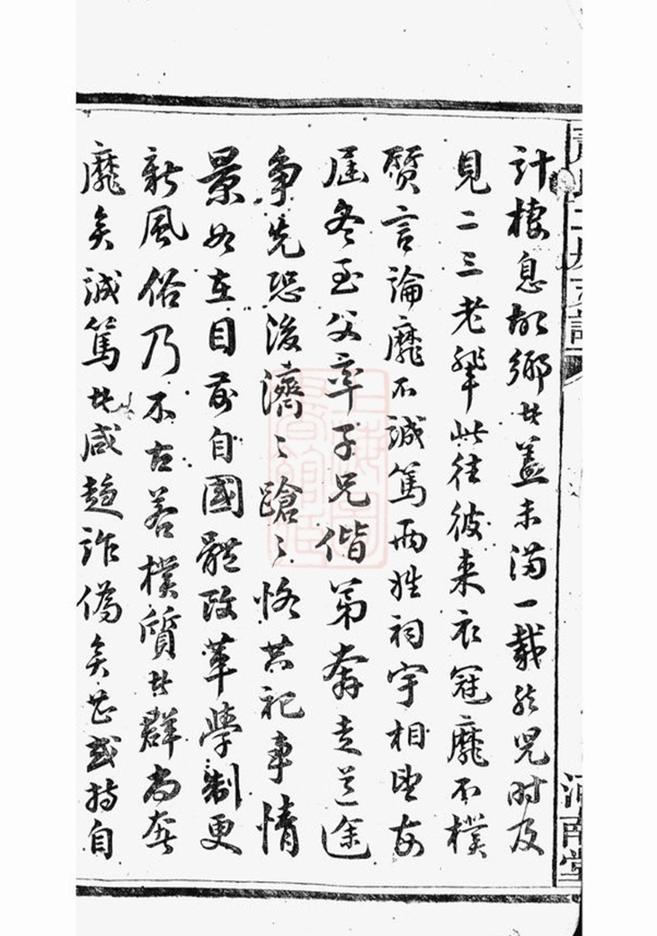 計棲息故鄉者蓋未滿一載然兒時及
見二三老輩此往彼來衣冠靡不樸
質言論靡不誠篤兩姓祠宇相望每
屆冬至父率子兄偕弟奔走道途
爭先恐後濟〻蹌〻恪共祀事情
景如在目前自國體改革學制更
新風俗乃不古若樸質者群尚奢
靡矣誠篤者咸趨詐偽矣甚或持自
河南堂